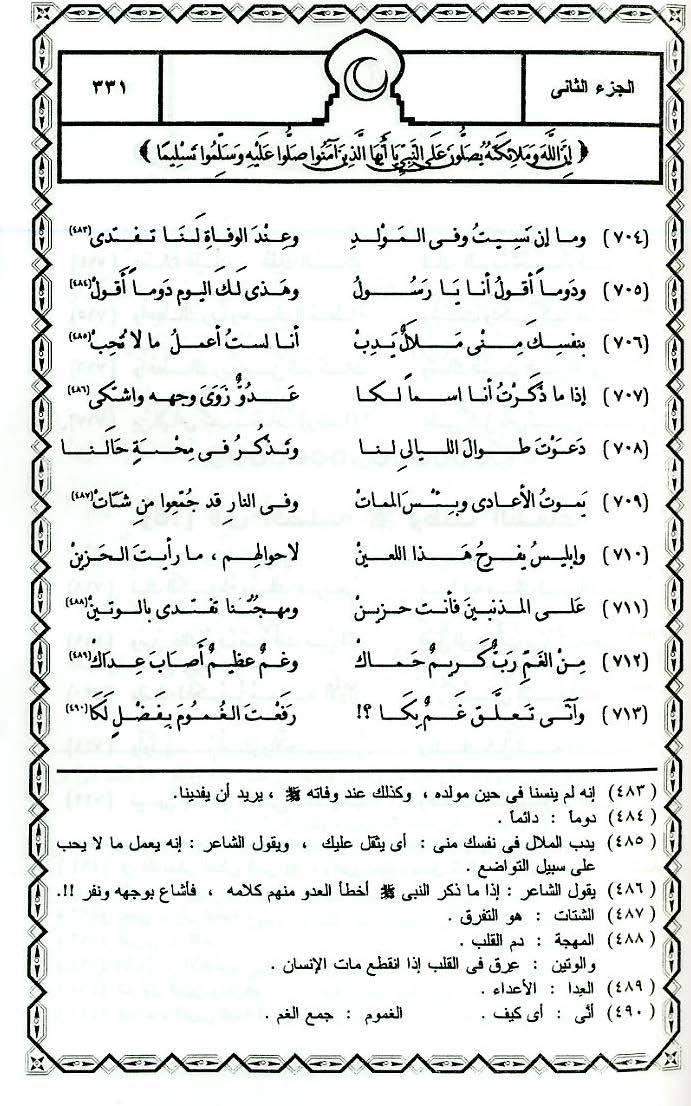 الجزء الثانى
٣٣١
﴿ إِنَّ اللَّهَ وَمَلَائِكَتَهُ يُصَلُّونَ عَلَى النَّبِيِّ يَا أَيُّهَا الَّذِينَ آمَنُوا صَلُّوا عَلَيْهِ وَسَلِّمُوا تَسْلِيمًا ﴾
(٧٠٤) وما إن نَسِيتُ وفى المَوْلِدِ وعِنْدَ الوفاةِ لَنَا تفتدى(٤٨٣)
(٧٠٥) ودَوماً أقولُ أنا يَا رَسُولُ وهَذى لَكَ اليوم دَوماً أَقولُ(٤٨٤)
(٧٠٦) بنفسِكَ مِنْى مَلَالٌ يَدِبْ أنا لستُ أعملُ ما لا تُحِبْ(٤٨٥)
(٧٠٧) إذا ما ذَكَرْتُ أنا اسماً لكا عَدُوٌّ زَوَىَ وجهه واشتكى(٤٨٦)
(٧٠٨) دَعَوْتَ طوالَ الليالى لنا وتَذْكُرُ فى مِحْنَةٍ حَالَنا
(٧٠٩) يَموتُ الأعادى وبِئْسَ المماتْ وفى النار قد جُمّعوا مِن شَتَاتْ(٤٨٧)
(٧١٠) وإبليسُ يفرحُ هَذا اللعينْ لاحوالهِم ، ما رأيتَ الحَزينْ
(٧١١) عَلى المذنبينَ فأنت حزينْ ومهجتُنا تفتدى بالوتينْ(٤٨٨)
(٧١٢) مِنْ الغَمِّ رَبٌّ كَريمٌ حَمَاكْ وغمٌ عظيمٌ أَصَابَ عِدَاكْ(٤٨٩)
(٧١٣) وآنّى تَعلَّق غَمٌ بِكَا ؟! رَفَعْتَ الغُمُومَ بِفَضْلٍ لَكَا(٤٩٠)
(٤٨٣) إنه لم ينسنا فى حين مولده ، وكذلك عند وفاته ﷺ ، يريد أن يفدينا.
(٤٨٤) دوماً : دائماً .
(٤٨٥) يدب الملال فى نفسك منى : أى يثقل عليك ، ويقول الشاعر : إنه يعمل ما لا يحب
على سبيل التواضع .
(٤٨٦) يقول الشاعر : إذا ما ذكر النبى ﷺ أخطأ العدو منهم كلامه ، فأشاع بوجهه ونفر !!.
(٤٨٧) الشتات : هو التفرق .
(٤٨٨) المهجة : دم القلب .
والوتين : عِرق فى القلب إذا انقطع مات الإنسان .
(٤٨٩) العِدا : الأعداء .
(٤٩٠) أنَّى : أى كيف . الغموم : جمع الغم .